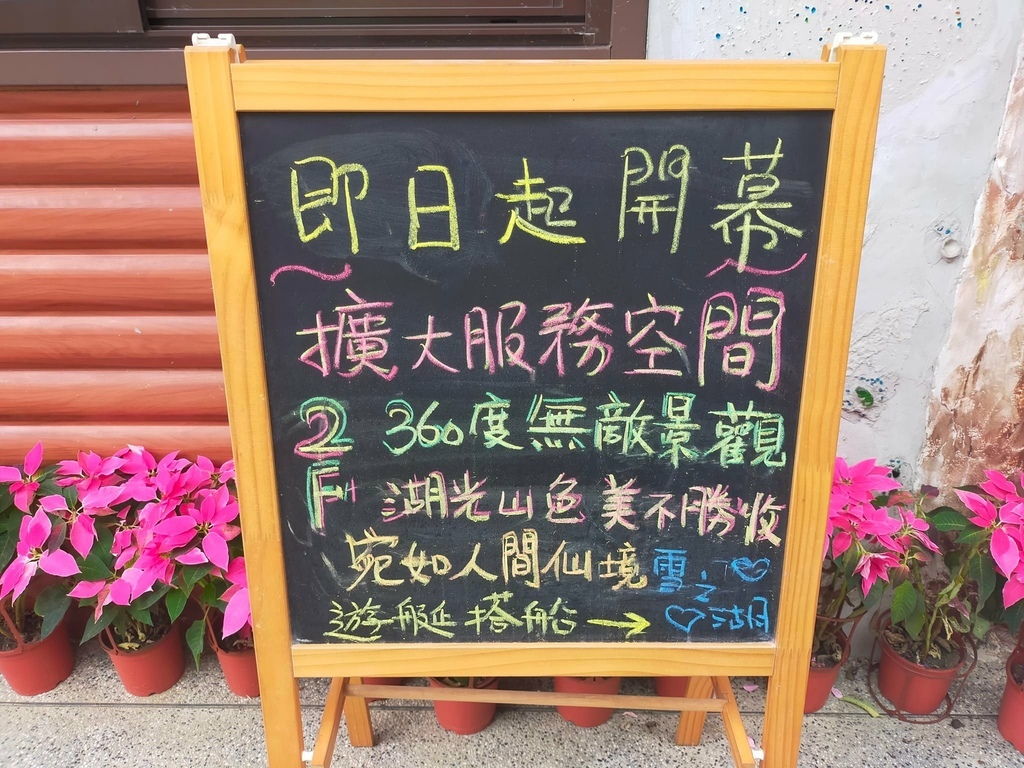 即日起開幕
擴大服務空間
2F 360度無敵景觀
湖光山色美不勝收
宛如人間仙境
雪之
遊艇搭船→